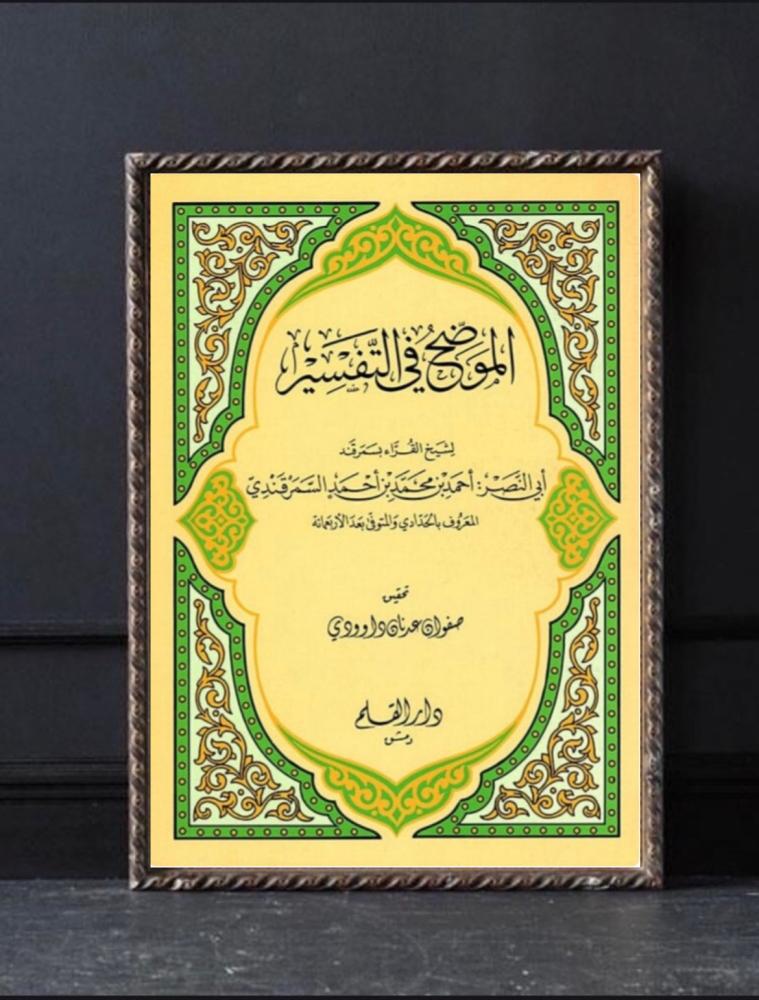 الموَضِّحُ في التَّفْسِيْرِ
لِشَيخ القُرَّاء بسَمرقَند
أبي النَّصَرْ: أحمَد بْن محَمَّد بْن أحْمَد السَّمَرقَندِي
المعَروف بالحَدّادي والمتوفّى بَعدَ الأربعمائة
تحقيق
صفوان عدنان داوودي
دار القلم
دمشق